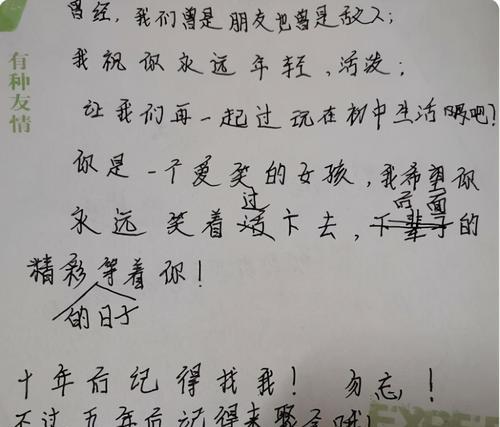 有种友情
曾经，我们曾是朋友也曾是敌人；
我祝你永远年轻，活泼；
让我们再一起过玩在初中生活吗吧？
你是一个爱笑的女孩，我希望你
永远笑着过下去，后面的
精彩的日子等着你！
十年后记得找我！勿忘！
不过五年后记得来聚会哦！